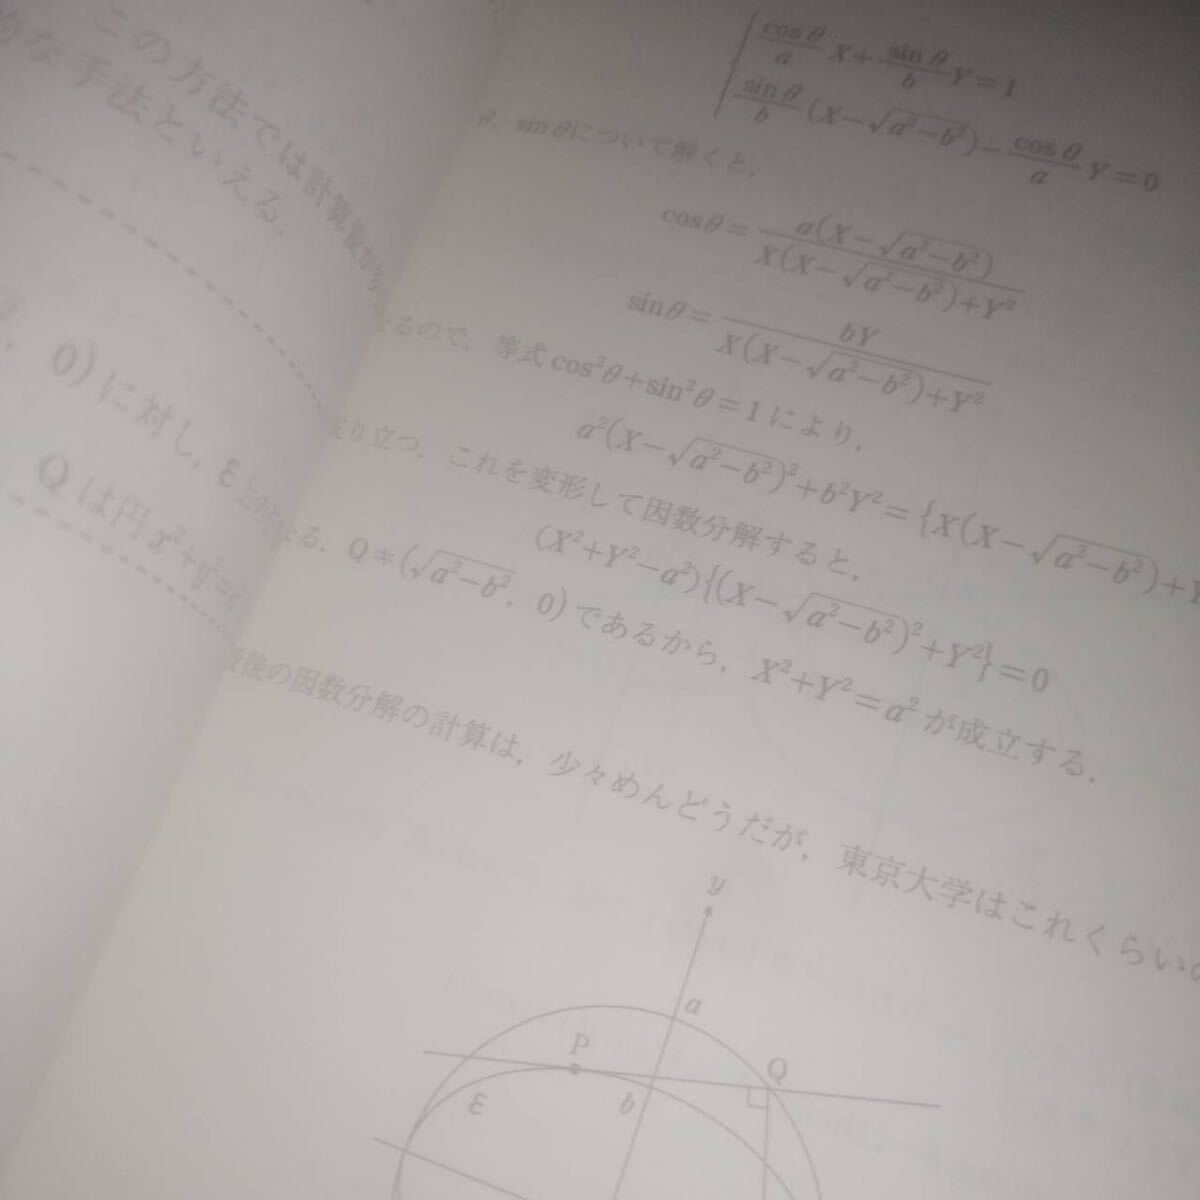 この方法では計算量が多
的な手法といえる.
0)に対し, ε上の
Qは円 x²+y²=
cosθ/a X+sinθ/b Y=1
sinθ/b (X−√(a²−b²))−cosθ/a Y=0
θ, sinθについて解くと,
cosθ=a(X−√(a²−b²))/(X(X−√(a²−b²))+Y²)
sinθ=bY/(X(X−√(a²−b²))+Y²)
なるので, 等式 cos²θ+sin²θ=1 により,
a²(X−√(a²−b²))²+b²Y²={X(X−√(a²−b²))+Y
り立つ. これを変形して因数分解すると,
(X²+Y²−a²){(X−√(a²−b²))²+Y²}=0
なる. Q≠(√(a²−b²), 0)であるから, X²+Y²=a² が成立する.
後の因数分解の計算は, 少々めんどうだが, 東京大学はこれくらいの
y
a
P
Q
ε
b